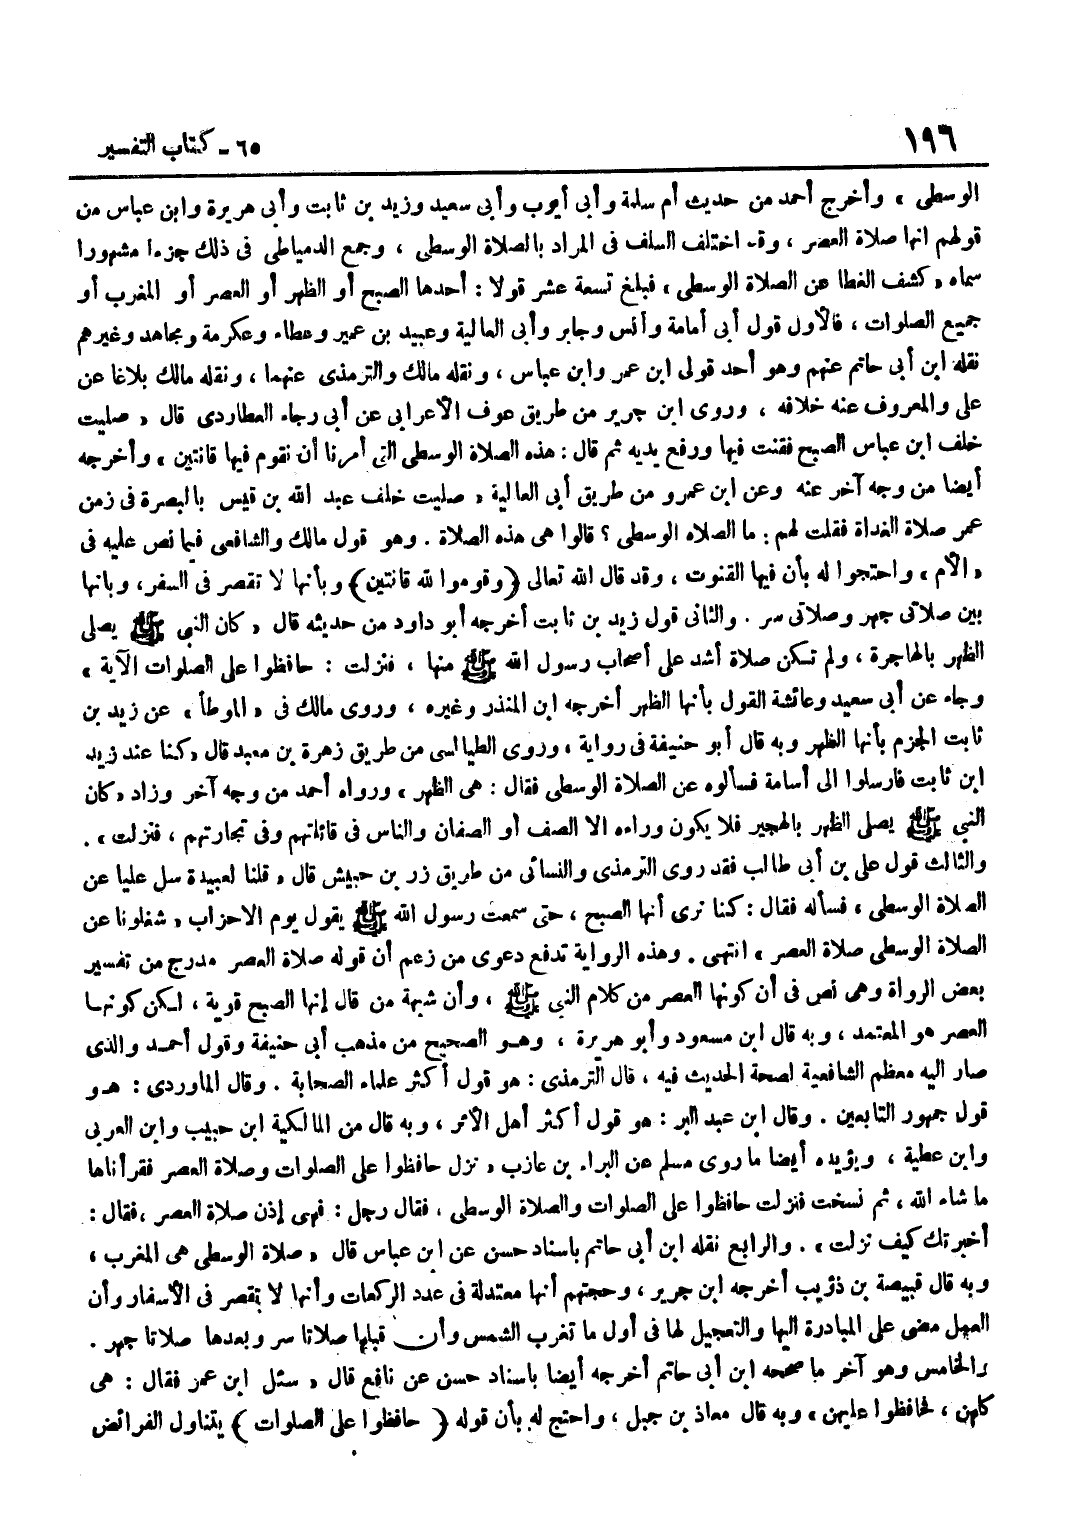 ١٩٦
٦٥ - كتاب التفسير
الوسطى » وأخرج أحمد من حديث أم سلمة وأبى أيوب وأبى سعيد وزيد بن ثابت وأبى هريرة وابن عباس من
قولهم انها صلاة العصر ، وقد اختلف السلف فى المراد بالصلاة الوسطى ، وجمع الدمياطى فى ذلك جزءا مشهورا
سماه « كشف الغطا عن الصلاة الوسطى » فبلغ تسعة عشر قولا : أحدها الصبح أو الظهر أو العصر أو المغرب أو
جميع الصلوات ، فالأول قول أبى أمامة وأنس وجابر وأبى العالية وعبيد بن عمير وعطاء وعكرمة ومجاهد وغيرهم
نقله ابن أبى حاتم عنهم وهو أحد قولى ابن عمر وابن عباس ، ونقله مالك والترمذى عنهما ، ونقله مالك بلاغا عن
على والمعروف عنه خلافه ، وروى ابن جرير من طريق عوف الأعرابى عن أبى رجاء العطاردى قال « صليت
خلف ابن عباس الصبح فقنت فيها ورفع يديه ثم قال : هذه الصلاة الوسطى التى أمرنا أن نقوم فيها قانتين » وأخرجه
أيضا من وجه آخر عنه وعن ابن عمرو من طريق أبى العالية « صليت خلف عبد الله بن قيس بالبصرة فى زمن
عمر صلاة الغداة فقلت لهم : ما الصلاه الوسطى ؟ قالوا هى هذه الصلاة . وهو قول مالك والشافعى فيما نص عليه فى
« الأم » واحتجوا له بأن فيها القنوت ، وقد قال الله تعالى ﴿وقوموا لله قانتين﴾ وبأنها لا تقصر فى السفر، وبانها
بين صلاتى جهر وصلاتى سر . والثانى قول زيد بن ثابت أخرجه أبو داود من حديثه قال « كان النبى ﷺ يصلى
الظهر بالهاجرة ، ولم تسكن صلاة أشد على أصحاب رسول الله ﷺ منها ، فنزلت : حافظوا على الصلوات الآية »
وجاء عن أبى سعيد وعائشة القول بأنها الظهر أخرجه ابن المنذر وغيره ، وروى مالك فى « الموطأ » عن زيد بن
ثابت الجزم بأنها الظهر وبه قال أبو حنيفة فى رواية ، وروى الطيالسى من طريق زهرة بن معبد قال « كنا عند زيد
ابن ثابت فارسلوا الى أسامة فسألوه عن الصلاة الوسطى فقال : هى الظهر » ورواه أحمد من وجه آخر وزاد « كان
النبى ﷺ يصلى الظهر بالهجير فلا يكون وراءه الا الصف أو الصفان والناس فى قائلتهم وفى تجارتهم ، فنزلت » .
والثالث قول على بن أبى طالب فقد روى الترمذى والنسائى من طريق زر بن حبيش قال « قلنا لعبيدة سل عليا عن
الصلاة الوسطى ، فسأله فقال : كنا نرى أنها الصبح ، حتى سمعت رسول الله ﷺ يقول يوم الاحزاب « شغلونا عن
الصلاة الوسطى صلاة العصر » انتهى . وهذه الرواية تدفع دعوى من زعم أن قوله صلاة العصر مدرج من تفسير
بعض الرواة وهى نص فى أن كونها العصر من كلام النبى ﷺ ، وأن شبهة من قال إنها الصبح قوية ، لكن كونها
العصر هو المعتمد ، وبه قال ابن مسعود وأبو هريرة ، وهو الصحيح من مذهب أبى حنيفة وقول أحمد والذى
صار اليه معظم الشافعية لصحة الحديث فيه ، قال الترمذى : هو قول أكثر علماء الصحابة . وقال الماوردى : هو
قول جمهور التابعين . وقال ابن عبد البر : هو قول أكثر أهل الأثر ، وبه قال من المالكية ابن حبيب وابن العربى
وابن عطية ، ويؤيده أيضا ما روى مسلم عن البراء بن عازب « نزل حافظوا على الصلوات وصلاة العصر فقرأناها
ما شاء الله ، ثم نسخت فنزلت حافظوا على الصلوات والصلاة الوسطى ، فقال رجل : فهى إذن صلاة العصر ، فقال :
أخبرتك كيف نزلت » . والرابع نقله ابن أبى حاتم باسناد حسن عن ابن عباس قال « صلاة الوسطى هى المغرب ،
وبه قال قبيصة بن ذؤيب أخرجه ابن جرير ، وحجتهم أنها معتدلة فى عدد الركعات وأنها لا تقصر فى الأسفار وأن
العمل مضى على المبادرة اليها والتعجيل لها فى أول ما تغرب الشمس وأن قبلها صلاتا سر وبعدها صلاتا جهر .
والخامس وهو آخر ما صححه ابن أبى حاتم أخرجه أيضا باسناد حسن عن نافع قال « سئل ابن عمر فقال : هى
كلهن ، فحافظوا عليهن » وبه قال معاذ بن جبل ، واحتج له بأن قوله ﴿ حافظوا على الصلوات ﴾ يتناول الفرائض